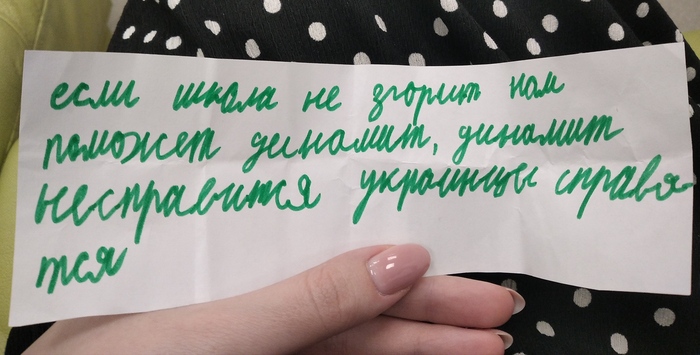 если школа не згорит нам
поможет динамит, динамит
несправится украинцы справя-
тся